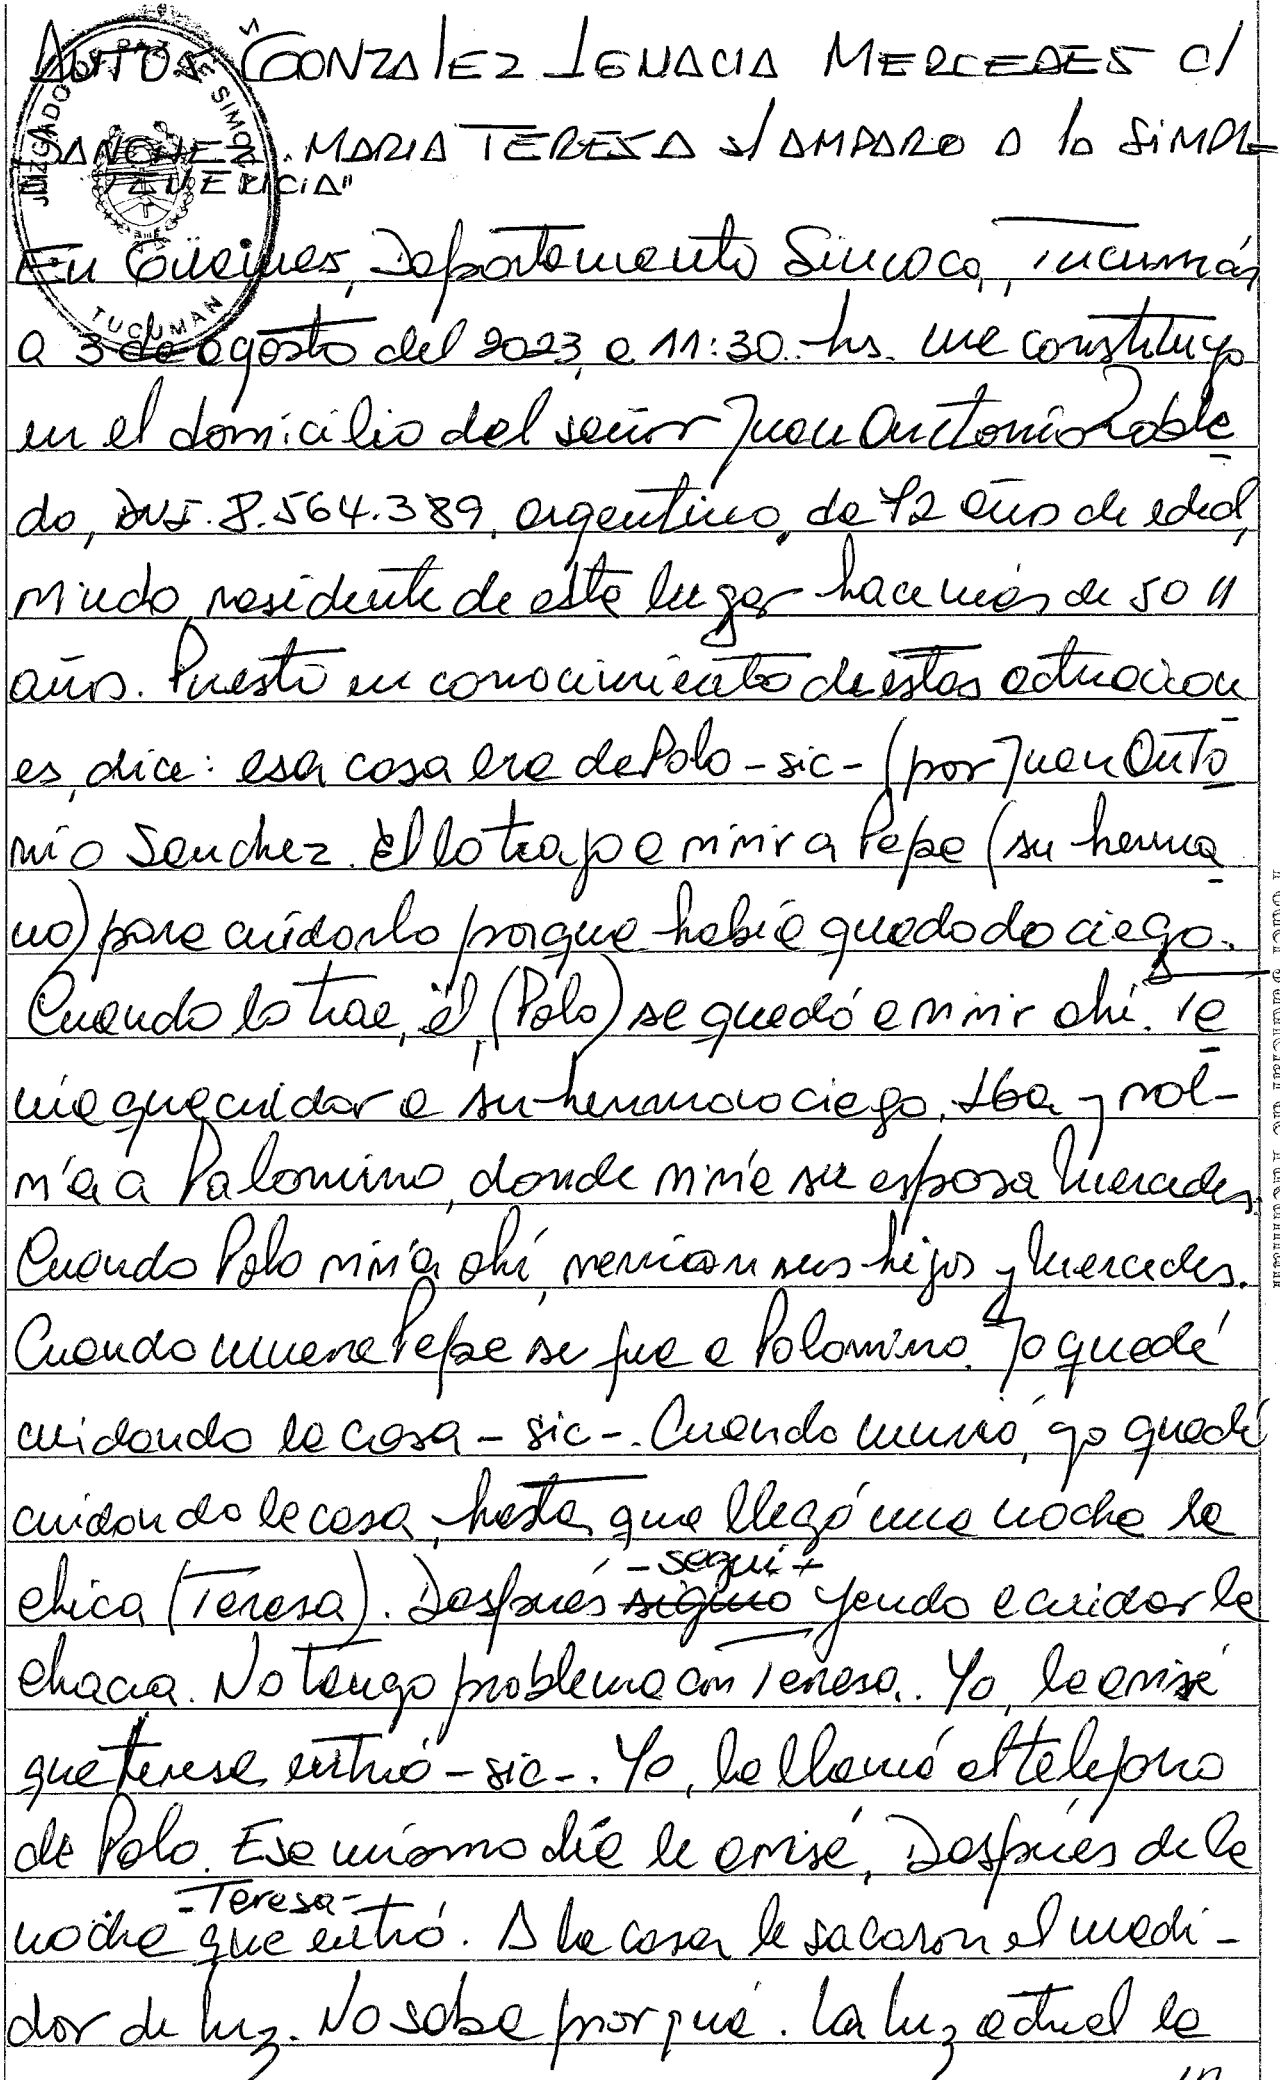 AUTOS "GONZALEZ IGNACIA MERCEDES C/
SANCHEZ MARIA TERESA S/ AMPARO A la SIMPL
TENENCIA"
JUZGADO DE PAZ DE SIMOCA
TUCUMAN
En Guemes, Departamento Simoca, Tucumán
a 3 de agosto del 2023, a 11:30 hs. me constituyo
en el domicilio del señor Juan Antonio Roble
do, DNI. 8.564.389, argentino, de 72 años de edad,
viudo, residente de este lugar hace más de 50 //
años. Puesto en conocimiento de estas actuacion
es, dice: esa casa era de Polo - sic - (por Juan Anto
nio Sanchez. El lo trajo a vivir a Pepe (su herma
no) para cuidarlo porque había quedado ciego.
Cuando lo trae, él, (Polo) se quedó a vivir ahí. Te
nía que cuidar a su hermano ciego. Iba y vol-
vía a Palomino, donde vivía su esposa Mercedes.
Cuando Polo vivía ahí, venían sus hijos y Mercedes.
Cuando muere Pepe se fue a Palomino. Yo quedé
cuidando la casa - sic -. Cuando murió, yo quedé
cuidando la casa, hasta que llegó una noche la
chica (Teresa). Después siguio - seguí + yendo a cuidar la
chacra. No tengo problema con Teresa. Yo, le avisé
que Teresa entró - sic -. Yo, la llamé al teléfono
de Polo. Ese mismo día le avisé, Después de la
noche - Teresa - + que entró. A la casa le sacaron el medi -
dor de luz. No sabe por qué. La luz actual la